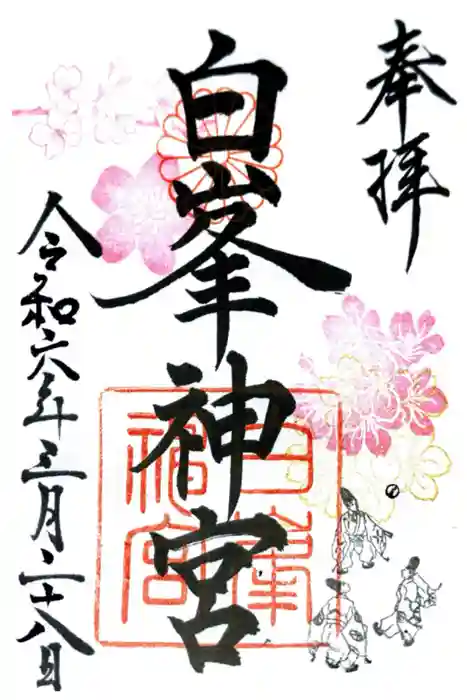 奉拝
白峯神宮
白峯神宮
令和六年三月二十八日